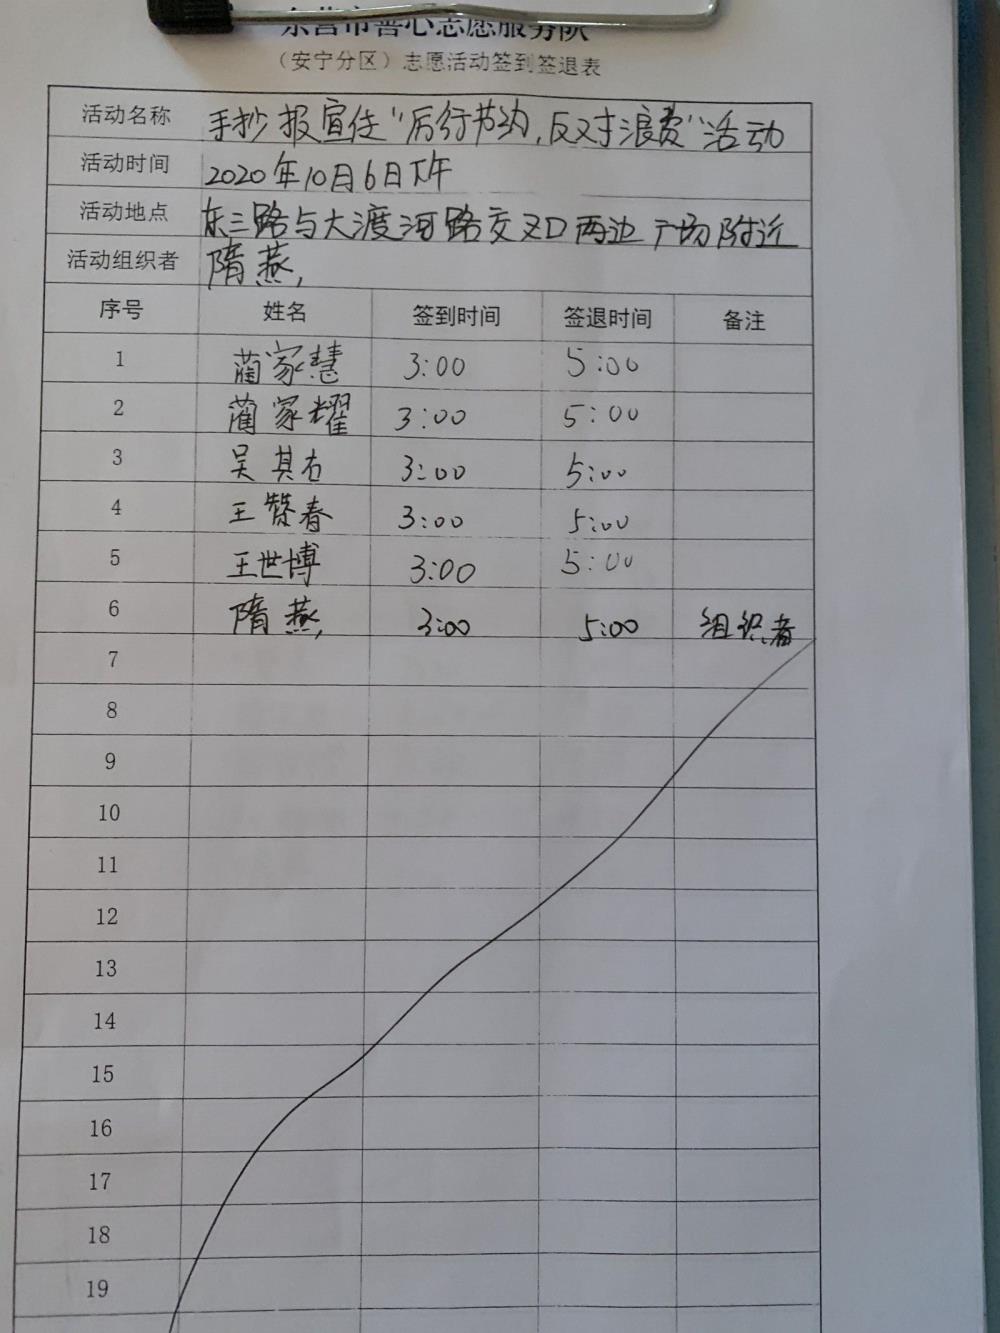 东营市善心志愿服务队
（安宁分区）志愿活动签到签退表
活动名称 手抄报宣传“厉行节约，反对浪费”活动
活动时间 2020年10月6日下午
活动地点 东三路与大渡河路交叉口两边广场附近
活动组织者 隋燕
序号 姓名 签到时间 签退时间 备注
1 蔺家慧 3:00 5:00
2 蔺家耀 3:00 5:00
3 吴其右 3:00 5:00
4 王赞春 3:00 5:00
5 王世博 3:00 5:00
6 隋燕 3:00 5:00 组织者
7
8
9
10
11
12
13
14
15
16
17
18
19